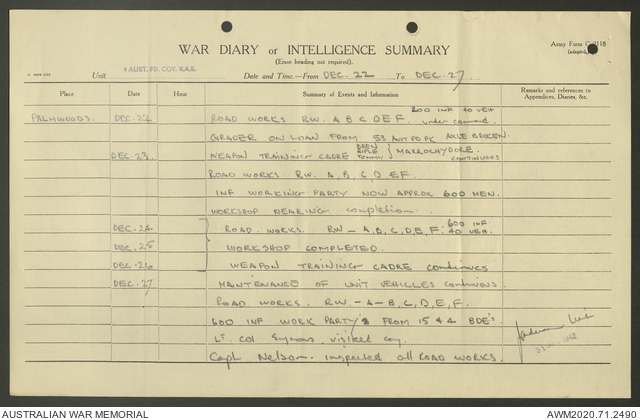 Army Form C.2118
(adapted)
WAR DIARY or INTELLIGENCE SUMMARY
(Erase heading not required).
Unit 4 AUST. FD. COY. R.A.E.
Date and Time.—From DEC. 22 To DEC. 27.
Place Date Hour Summary of Events and Information Remarks and references to Appendices, Diaries, &c.
200 INF 40 VEH
PALMWOODS. DEC. 22 ROAD WORKS RW. A B C D E F. under command.
GRADER ON LOAN FROM 53 AUST FD PK AXLE BROKEN.
DEC. 23 WEAPON TRAINING CADRE BREN RIFLE TOMMY } MAROOCHYDORE. CONTINUOUS
ROAD WORKS RW. A, B, C, D E F.
INF WORKING PARTY NOW APPROX 600 MEN.
WORKSHOP NEARING completion.
DEC. 24 ROAD. WORKS. RW – A, B, C, D, E, F: 600 INF 40 VEH.
DEC. 25 WORKSHOP COMPLETED.
DEC. 26 WEAPON TRAINING CADRE continues
DEC. 27. MAINTENANCE OF UNIT VEHICLES continuous.
ROAD WORKS. RW. – A – B, C, D, E, F.
600 INF WORK PARTY'S FROM 15 & 4 BDE'S
LT. COL Symons visited coy.
Capt Nelson. inspected all ROAD WORKS.
AUSTRALIAN WAR MEMORIAL
AWM2020.71.2490